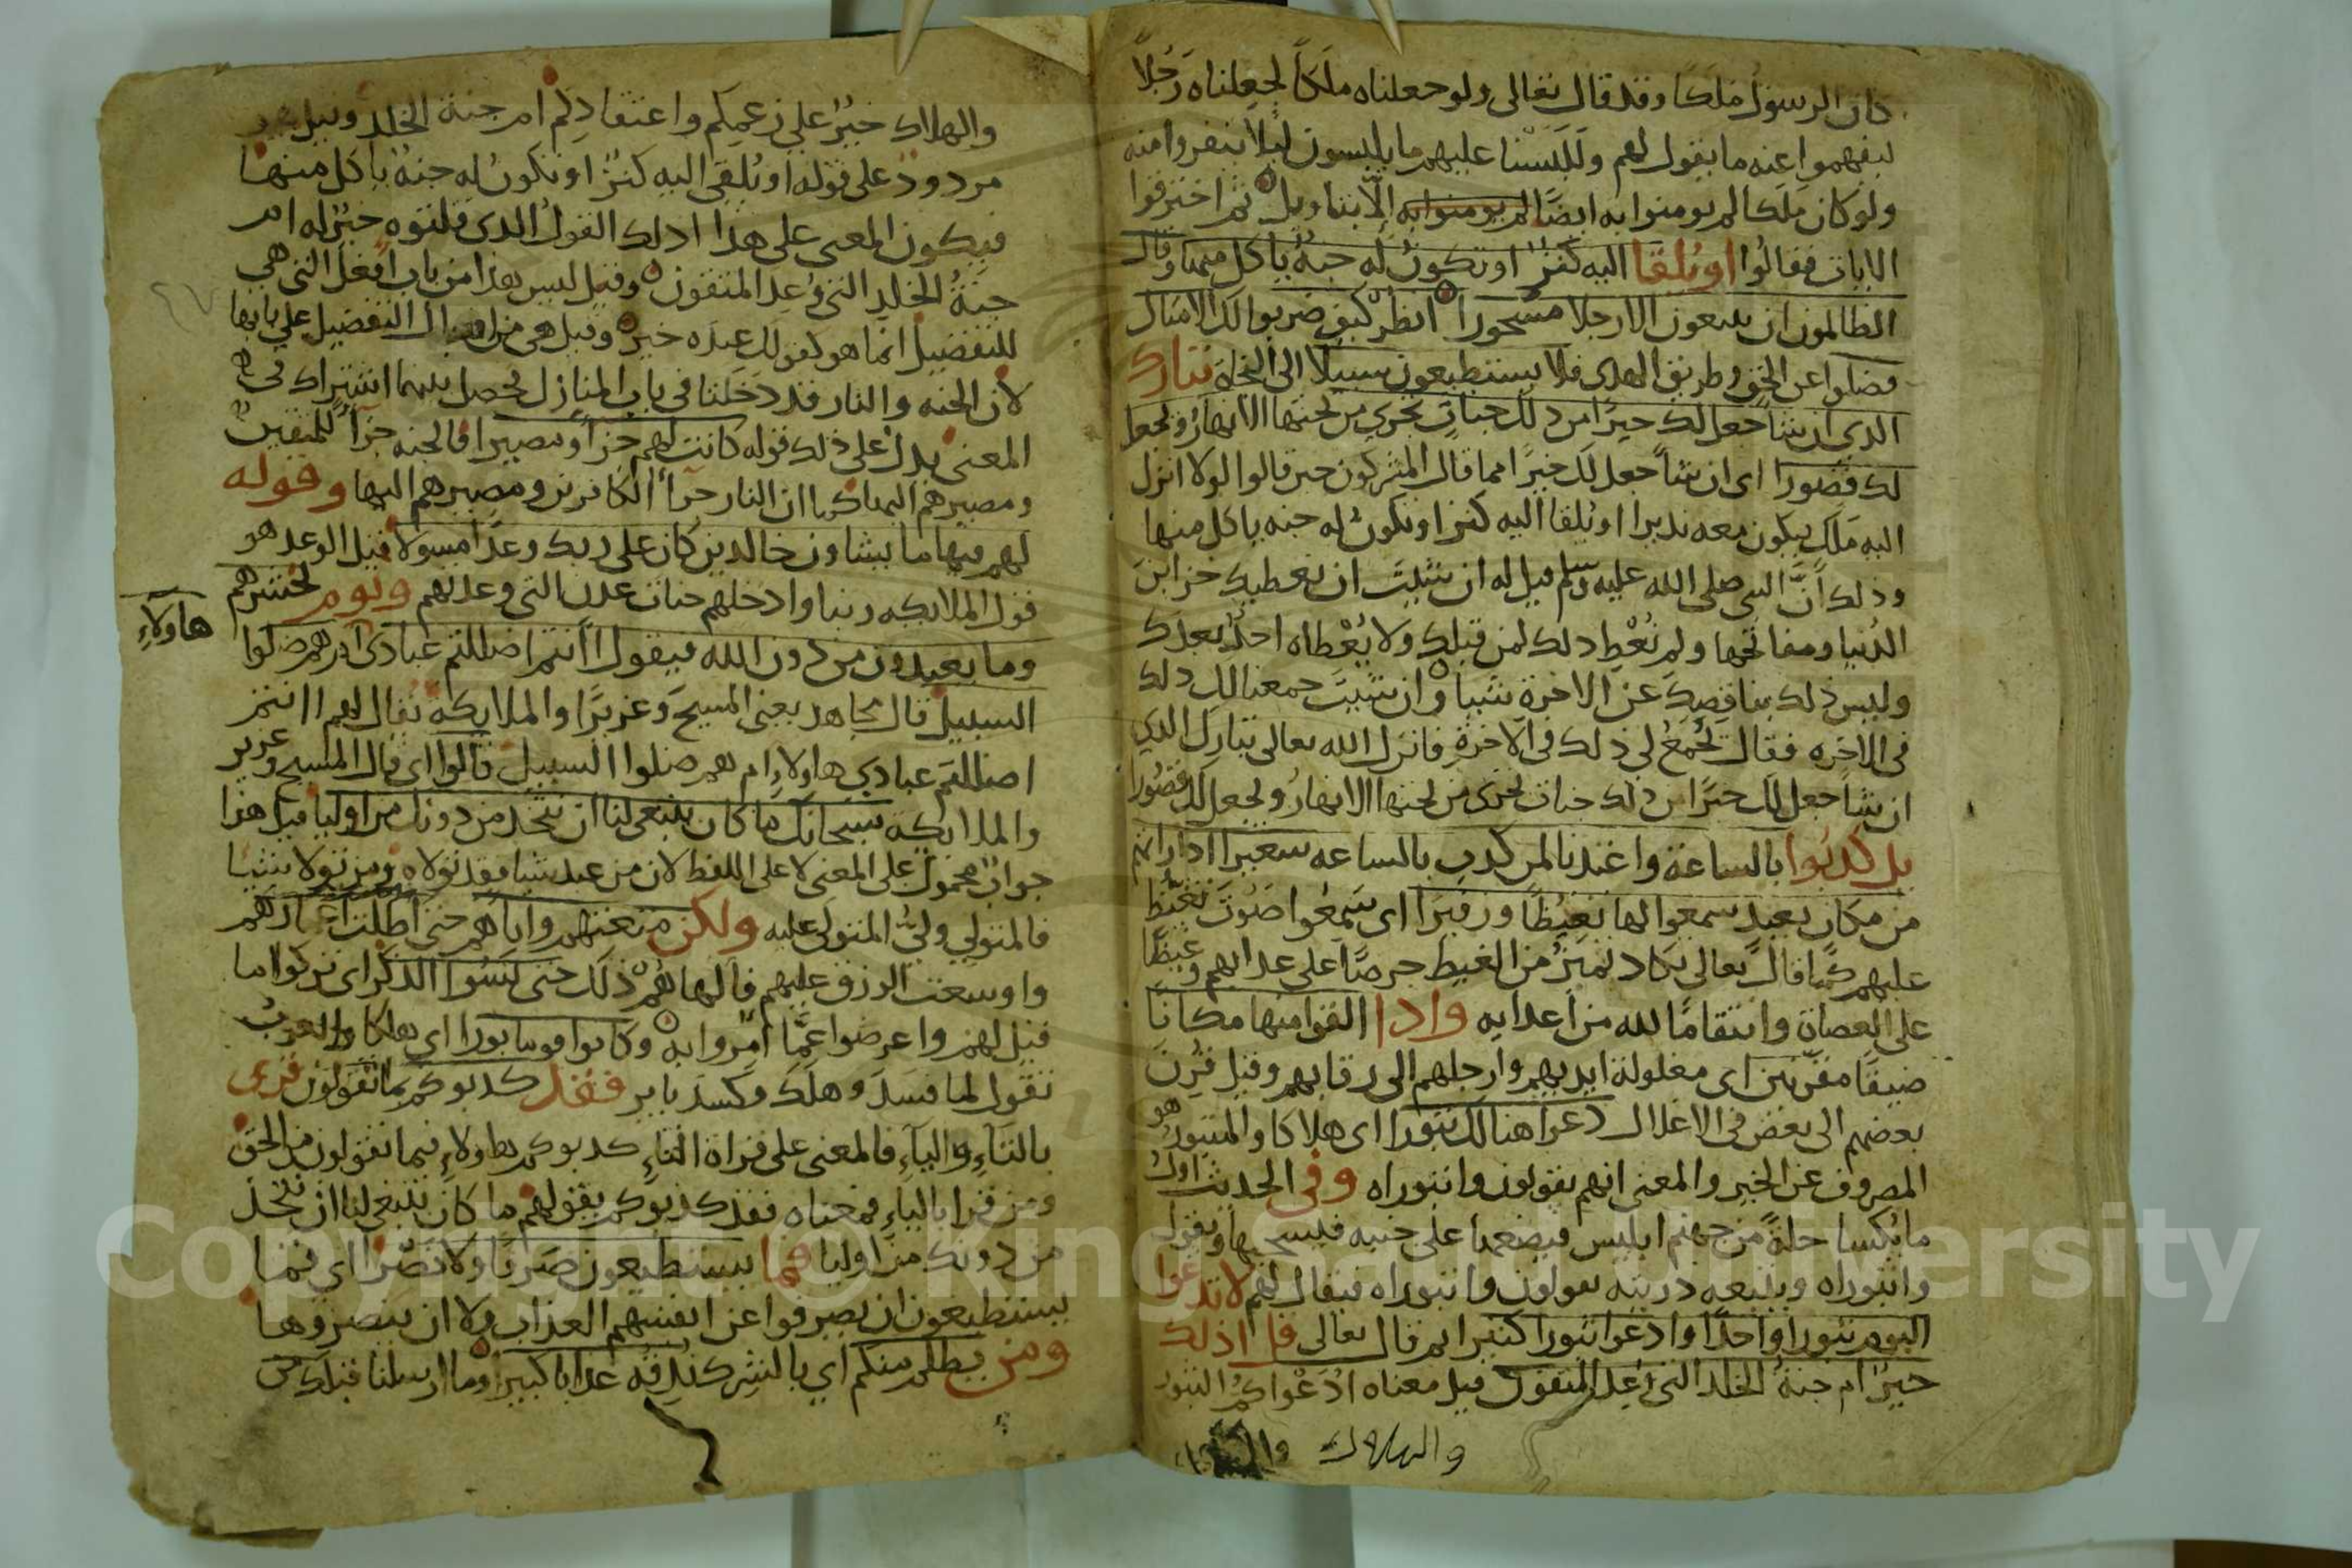 كان الرسول ملكا وقد قال تعالى ولو جعلناه ملكاً لجعلناه رجلاً
ليفهموا عنه ما يقول لهم وللبسنا عليهم ما يلبسون ليلا ينفروا منه
ولو كان ملكا لم يومنوا به ايضا لم يومنوا به الا بتاويل ثم اخترفوا
الايات فقالوا او يلقا اليه كنز او تكون له جنة ياكل منها وقال
الظالمون ان يتبعون الا رجلا مسحورا انظر كيف ضربوا لك الامثال
فضلوا عن الحق وطريق الهدى فلا يستطيعون سبيلا الى النجاة تبارك
الذي ان شا جعل لك خيرا من ذلك جنات تجري من تحتها الانهار ويجعل
لك قصورا اى ان شا جعل لك خيرا مما قال المشركون حين قالوا لولا انزل
اليه ملك فيكون معه نديرا او يلقا اليه كنز او تكون له جنه ياكل منها
وذلك انّ النبي صلى الله عليه وسلم قيل له ان شيت ان نعطيك خزاين
الدنيا ومفاتحها ولم نُعْطِ ذلك لمن قبلك ولا يُعْطاه احد بعدك
وليس ذلك بناقصك عن الاخرة شيا وان شيت جمعنا لك ذلك
فى الاخره فقال يُجمع لى ذلك فى الاخرة فانزل الله تعالى تبارك الذي
ان شا جعل لك خيرًا من ذلك جنات تجرى من تحتها الانهار ويجعل لك قصورا
بل كذبوا بالساعة واعتدنا لمن كذب بالساعه سعيرا اذا راتهم
من مكان بعيد سمعوا لها تغيظًا وزفيرا اى سمعوا صوت تغيّظ
عليهم كما قال تعالى تكاد تميز من الغيظ حرصًا على عذابهم وغيظًا
على العصاة وانتقامًا لله من اعدايه واذا القوا منها مكانًا
ضيقًا مقرنين اى مغلولة ايديهم وارجلهم الى رقابهم وقيل قُرن
بعضهم الى بعض فى الاغلال دعوا هنالك ثبورا اى هلاكا والمثبور هو
المصروف عن الخير والمعنى انهم يقولون واثبوراه وفى الحديث اول
ما يكسا حلة من جهنم ابليس فيضعها على جنبه فيسحبها ويقول
واثبوراه ويتبعه ذريته يقولون واثبوراه فيقال لهم لا تدعوا
اليوم ثبورا واحدًا وادعوا ثبورا كثيرا ثم قال تعالى قل اذلك
خير ام جنة الخلد التى وُعد المتقون قيل معناه ادعواكم الثبور
والهلاك
والهلاك خير على زعمكم واعتقادكم ام جنة الخلد وقيل
مردود على قوله او يلقى اليه كنز او تكون له جنة ياكل منها
فيكون المعنى على هذا اذلك القول الذى قلتوه خير له ام
جنة الخلد التى وُعد المتقون وقيل ليس هذا من باب افعل التى هي
للتفضيل انما هو كقولك عنده خير وقيل هى من افعال التفضيل على بابها
لان الجنه والنار قد دخلتا فى باب المنازل فحصل بينهما اشتراك في
المعنى يدل على ذلك قوله كانت لهم جزا ومصيرا فالجنه جزاء للمتقين
ومصيرهم اليها كما ان النار جزاء الكافرين ومصيرهم اليها وقوله
لهم فيها ما يشاون خالدين كان على ربك وعدًا مسولا قيل الوعد هو
قول الملايكه ربنا وادخلهم جنات عدن التى وعدتهم ويوم نحشرهم
وما يعبدون من دون الله فيقول اانتم اضللتم عبادى ام هم ضلوا
هاولاءِ
السبيل قال مجاهد يعنى المسيح وعزيرًا والملايكة يقال لهم اانتم
اضللتم عبادي هاولاء ام هم ضلوا السبيل قالوا اى قال المسيح وعزير
والملايكة سبحانك ما كان ينبغى لنا ان نتخذ من دونك من اوليا قيل هذا
جواب محمول على المعنى لا على اللفظ لان من عبد شيا فقد تولاه ومن تولا شيا
فالمتولي وليّ المتولى عليه ولكن متعتهم واباهم حتى اطلت اعمارهم
واوسعت الرزق عليهم فالهاهم ذلك حتى نسوا الذكر اى تركوا ما
قيل لهم واعرضوا عمّا امروا به وكانوا قوما بورا اى هلكا والعرب
تقول لما فسد وهلك وكسد باير فقد كذبوكم بما تقولون قرى
بالتاء والياء فالمعنى على قراة التاء كذبوكم هاولاء فيما تقولون من الحق
ومن قرا بالياء فمعناه فقد كذبوكم بقولهم ما كان ينبغى لنا ان نتخذ
من دونك من اوليا فما يستطيعون صرفًا ولا نصرًا اى فما
يستطيعون ان يصرفوا عن انفسهم العذاب ولا ان ينصروها
ومن يظلم منكم اي بالشرك نذقه عذابا كبيرا وما ارسلنا قبلك من
Copyright © King Saud University